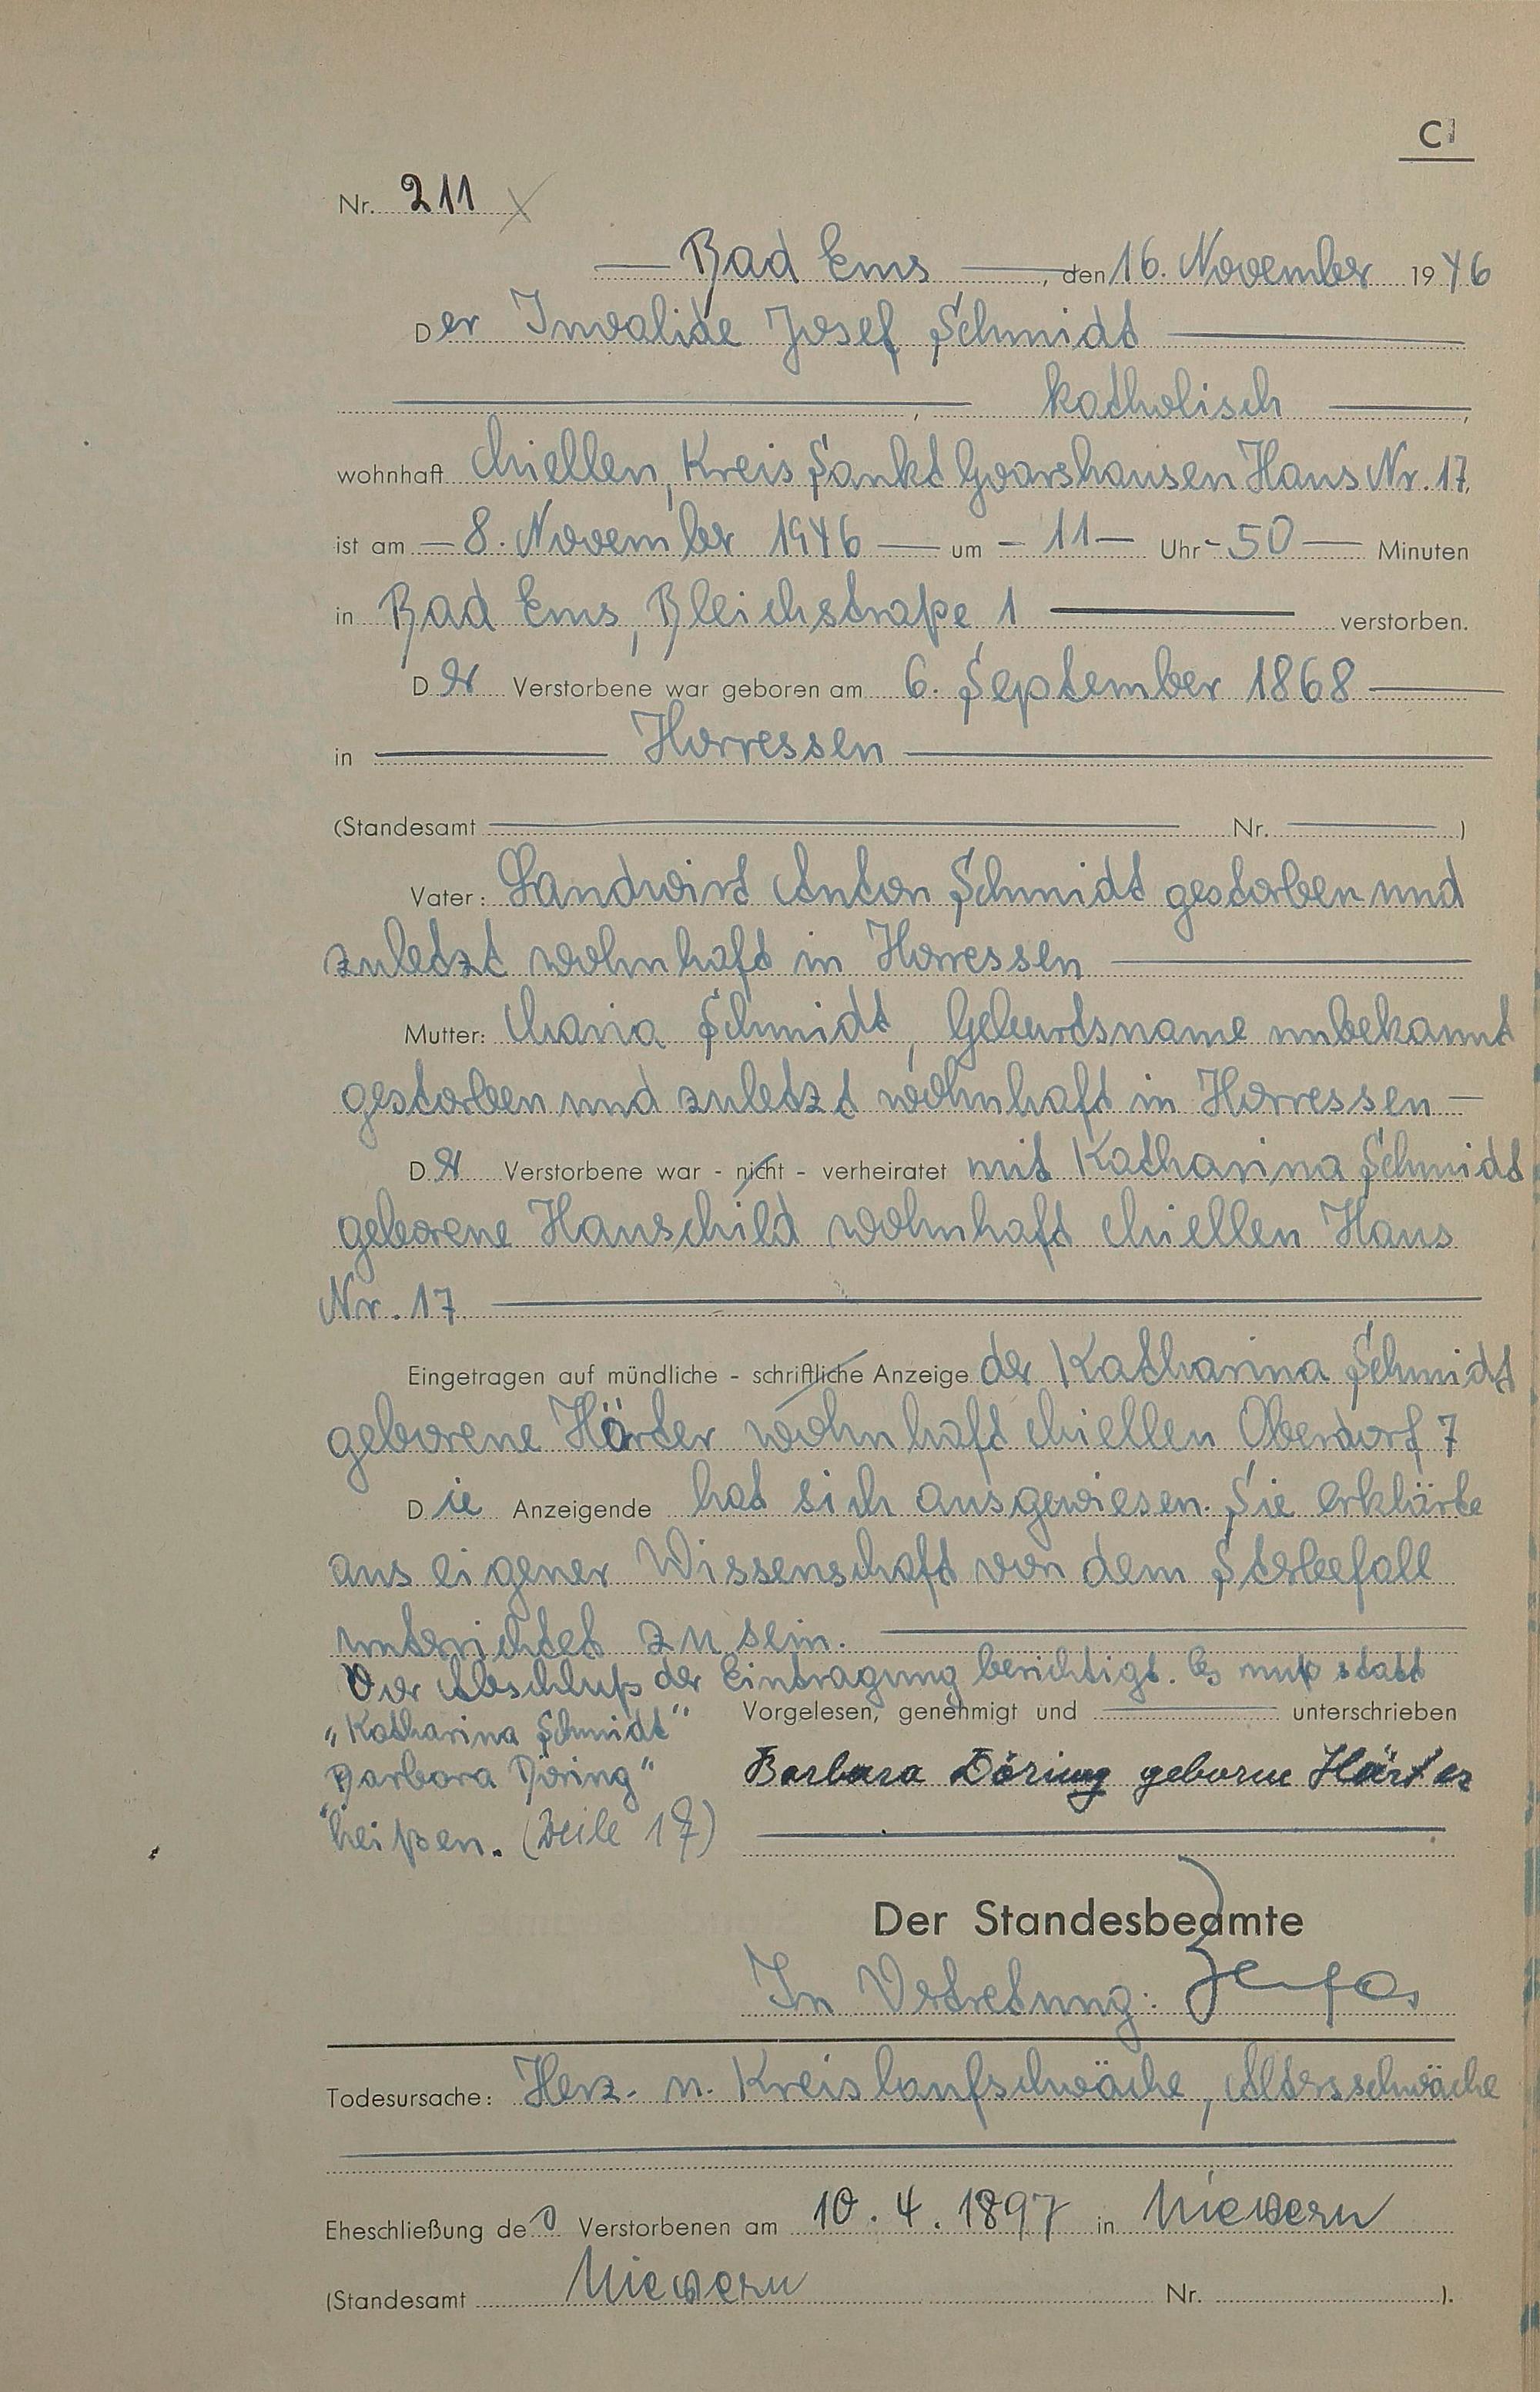 C
Nr. 211
Bad Ems, den 16. November 1946
Der Invalide Josef Schmidt
, katholisch,
wohnhaft Miellen, Kreis Sankt Goarshausen Haus Nr. 17,
ist am 8. November 1946 um 11 Uhr 50 Minuten
in Bad Ems, Bleichstraße 1 verstorben.
Der Verstorbene war geboren am 6. September 1868
in Horressen
(Standesamt Nr. )
Vater: Landwirt Anton Schmidt gestorben und
zuletzt wohnhaft in Horressen
Mutter: Maria Schmidt, Geburtsname unbekannt
gestorben und zuletzt wohnhaft in Horressen
Der Verstorbene war - nicht - verheiratet mit Katharina Schmidt
geborene Hauschild wohnhaft Miellen Haus
Nr. 17
Eingetragen auf mündliche - schriftliche Anzeige der Katharina Schmidt
geborene Härter wohnhaft Miellen Oberdorf 7
Die Anzeigende hat sich ausgewiesen. Sie erklärte
aus eigener Wissenschaft von dem Sterbefall
unterrichtet zu sein.
Vor Abschluß der Eintragung berichtigt. Es muß statt
„Katharina Schmidt"
Barbara Döring"
heißen. (Zeile 17)
Vorgelesen, genehmigt und unterschrieben
Barbara Döring geborne Härter
Der Standesbeamte
In Vertretung:
Todesursache: Herz- u. Kreislaufschwäche, Altersschwäche
Eheschließung des Verstorbenen am 10. 4. 1897 in Nievern
(Standesamt Nievern Nr. ).